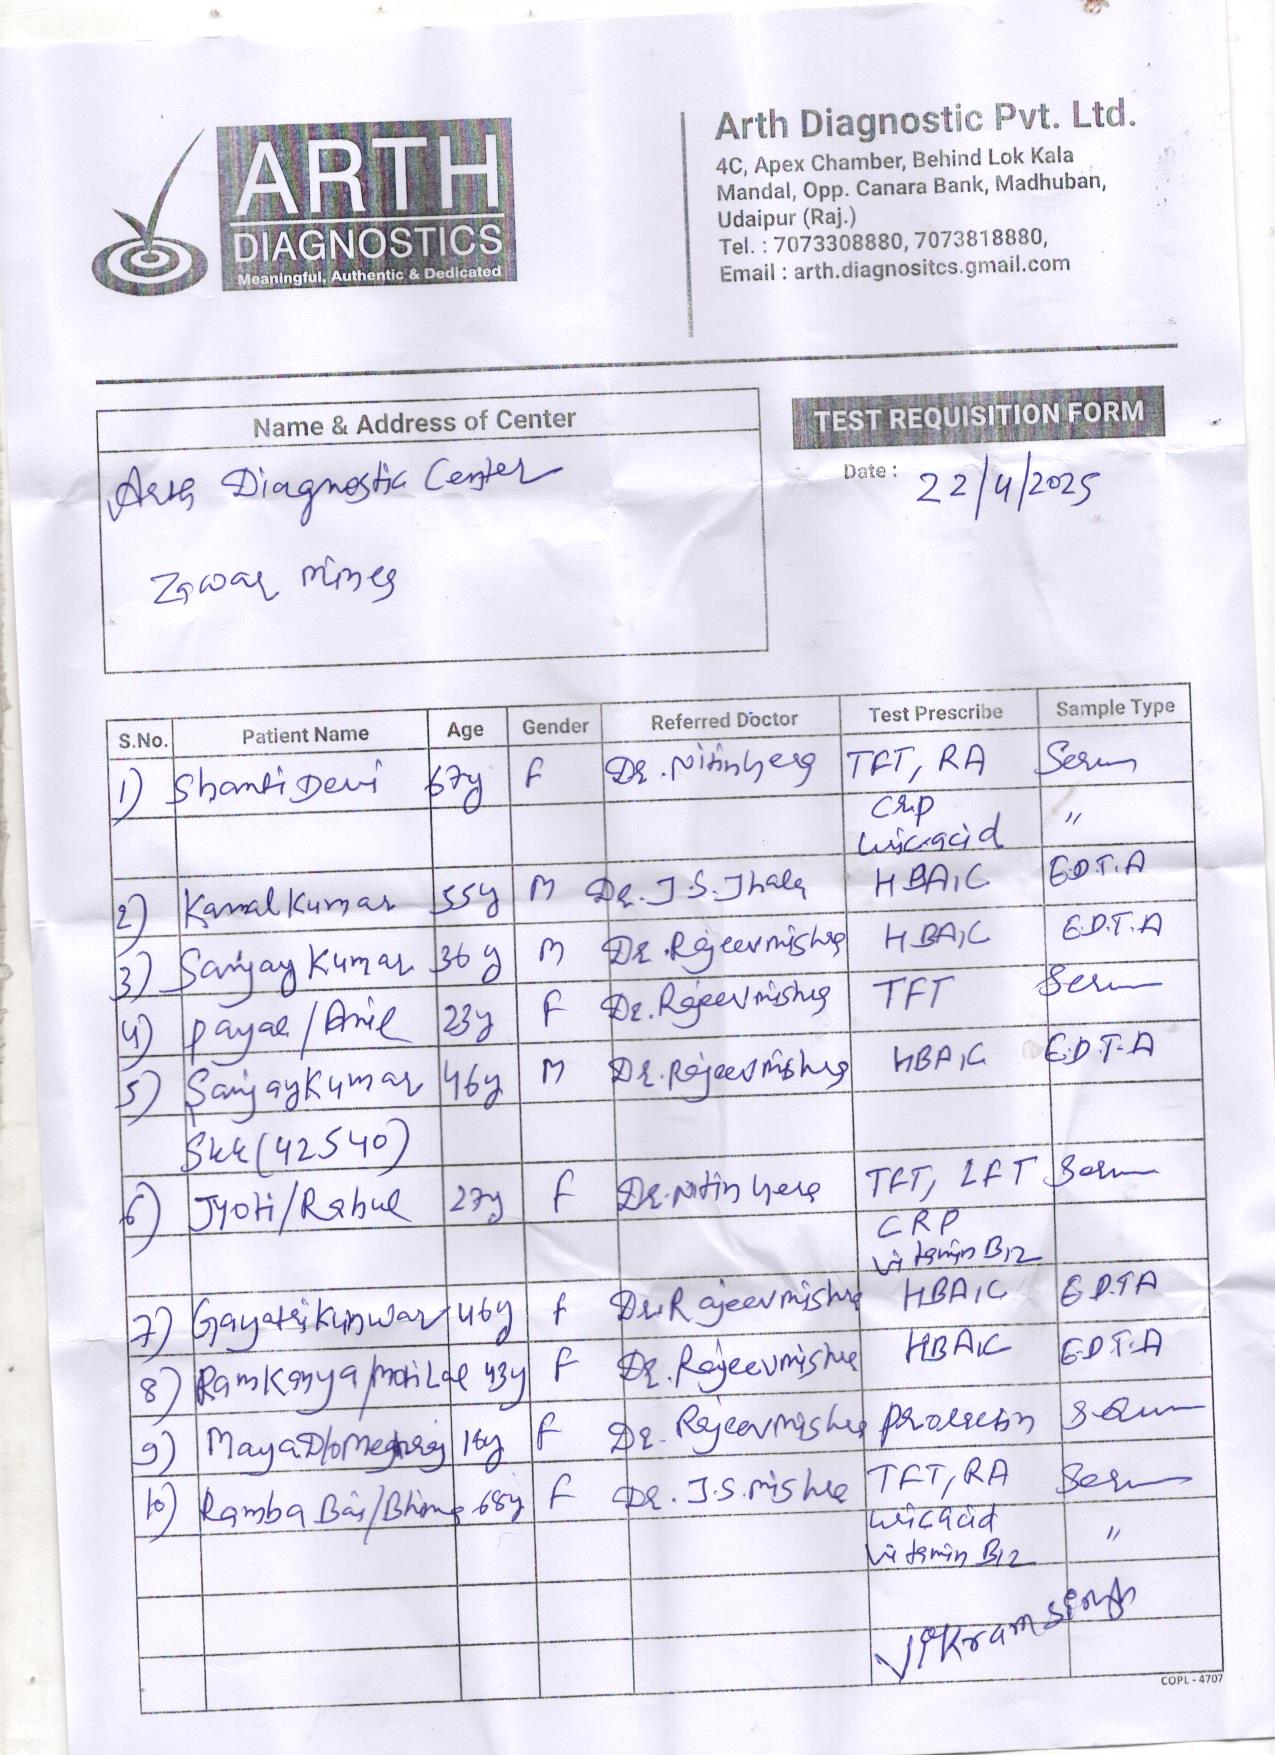 ARTH
DIAGNOSTICS
Meaningful, Authentic & Dedicated
Arth Diagnostic Pvt. Ltd.
4C, Apex Chamber, Behind Lok Kala
Mandal, Opp. Canara Bank, Madhuban,
Udaipur (Raj.)
Tel. : 7073308880, 7073818880,
Email : arth.diagnositcs.gmail.com
Name & Address of Center
Arth Diagnostic Center
Zawar Mines
TEST REQUISITION FORM
Date : 22/4/2025
S.No. Patient Name Age Gender Referred Doctor Test Prescribe Sample Type
1) Shanti Devi 67y F Dr. Nitin TFT, RA Serum
CRP "
Uric acid
2) Kamal Kumar 55y M Dr. J.S. Jhala HBA1C E.D.T.A
3) Sanjay Kumar 36y M Dr. Rajeev Mishra HBA1C E.D.T.A
4) Payal / Anil 23y F Dr. Rajeev Mishra TFT Serum
5) Sanjay Kumar 46y M Dr. Rajeev Mishra HBA1C E.D.T.A
(42540)
6) Jyoti / Rahul 27y F Dr. Nitin TFT, LFT Serum
CRP
Vitamin B12
7) Gayatri Kunwar 46y F Dr. Rajeev Mishra HBA1C E.D.T.A
8) Ram Kanya / Moti Lal 43y F Dr. Rajeev Mishra HBA1C E.D.T.A
9) Maya D/o Meghraj 18y F Dr. Rajeev Mishra Prolactin Serum
10) Ramba Bai / 68y F Dr. J.S. Mishra TFT, RA Serum
Uric acid "
Vitamin B12
Vikram Singh
COPL - 4707